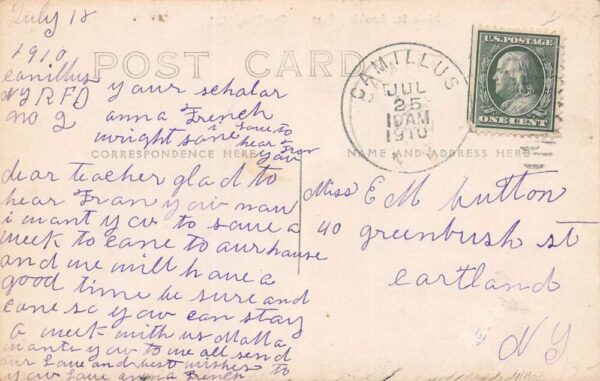 July 18
1910
camillus
NY RFD
no 2
your scholar
anna French
wright sone i love to
hear from
you
POST CARD
CORRESPONDENCE HERE
NAME AND ADDRESS HERE
CAMILLUS
JUL
25
10AM
1910
N.Y.
U.S. POSTAGE
ONE CENT
dear teacher glad to
hear From you now
i want you to save a
week to come to our house
and we will have a
good time be sure and
come so you can stay
a week with us Mama
wants you to we all send
our Love and best wishes to
you Love anna French
Miss E M hutton
40 greenbush st
cortland
NY